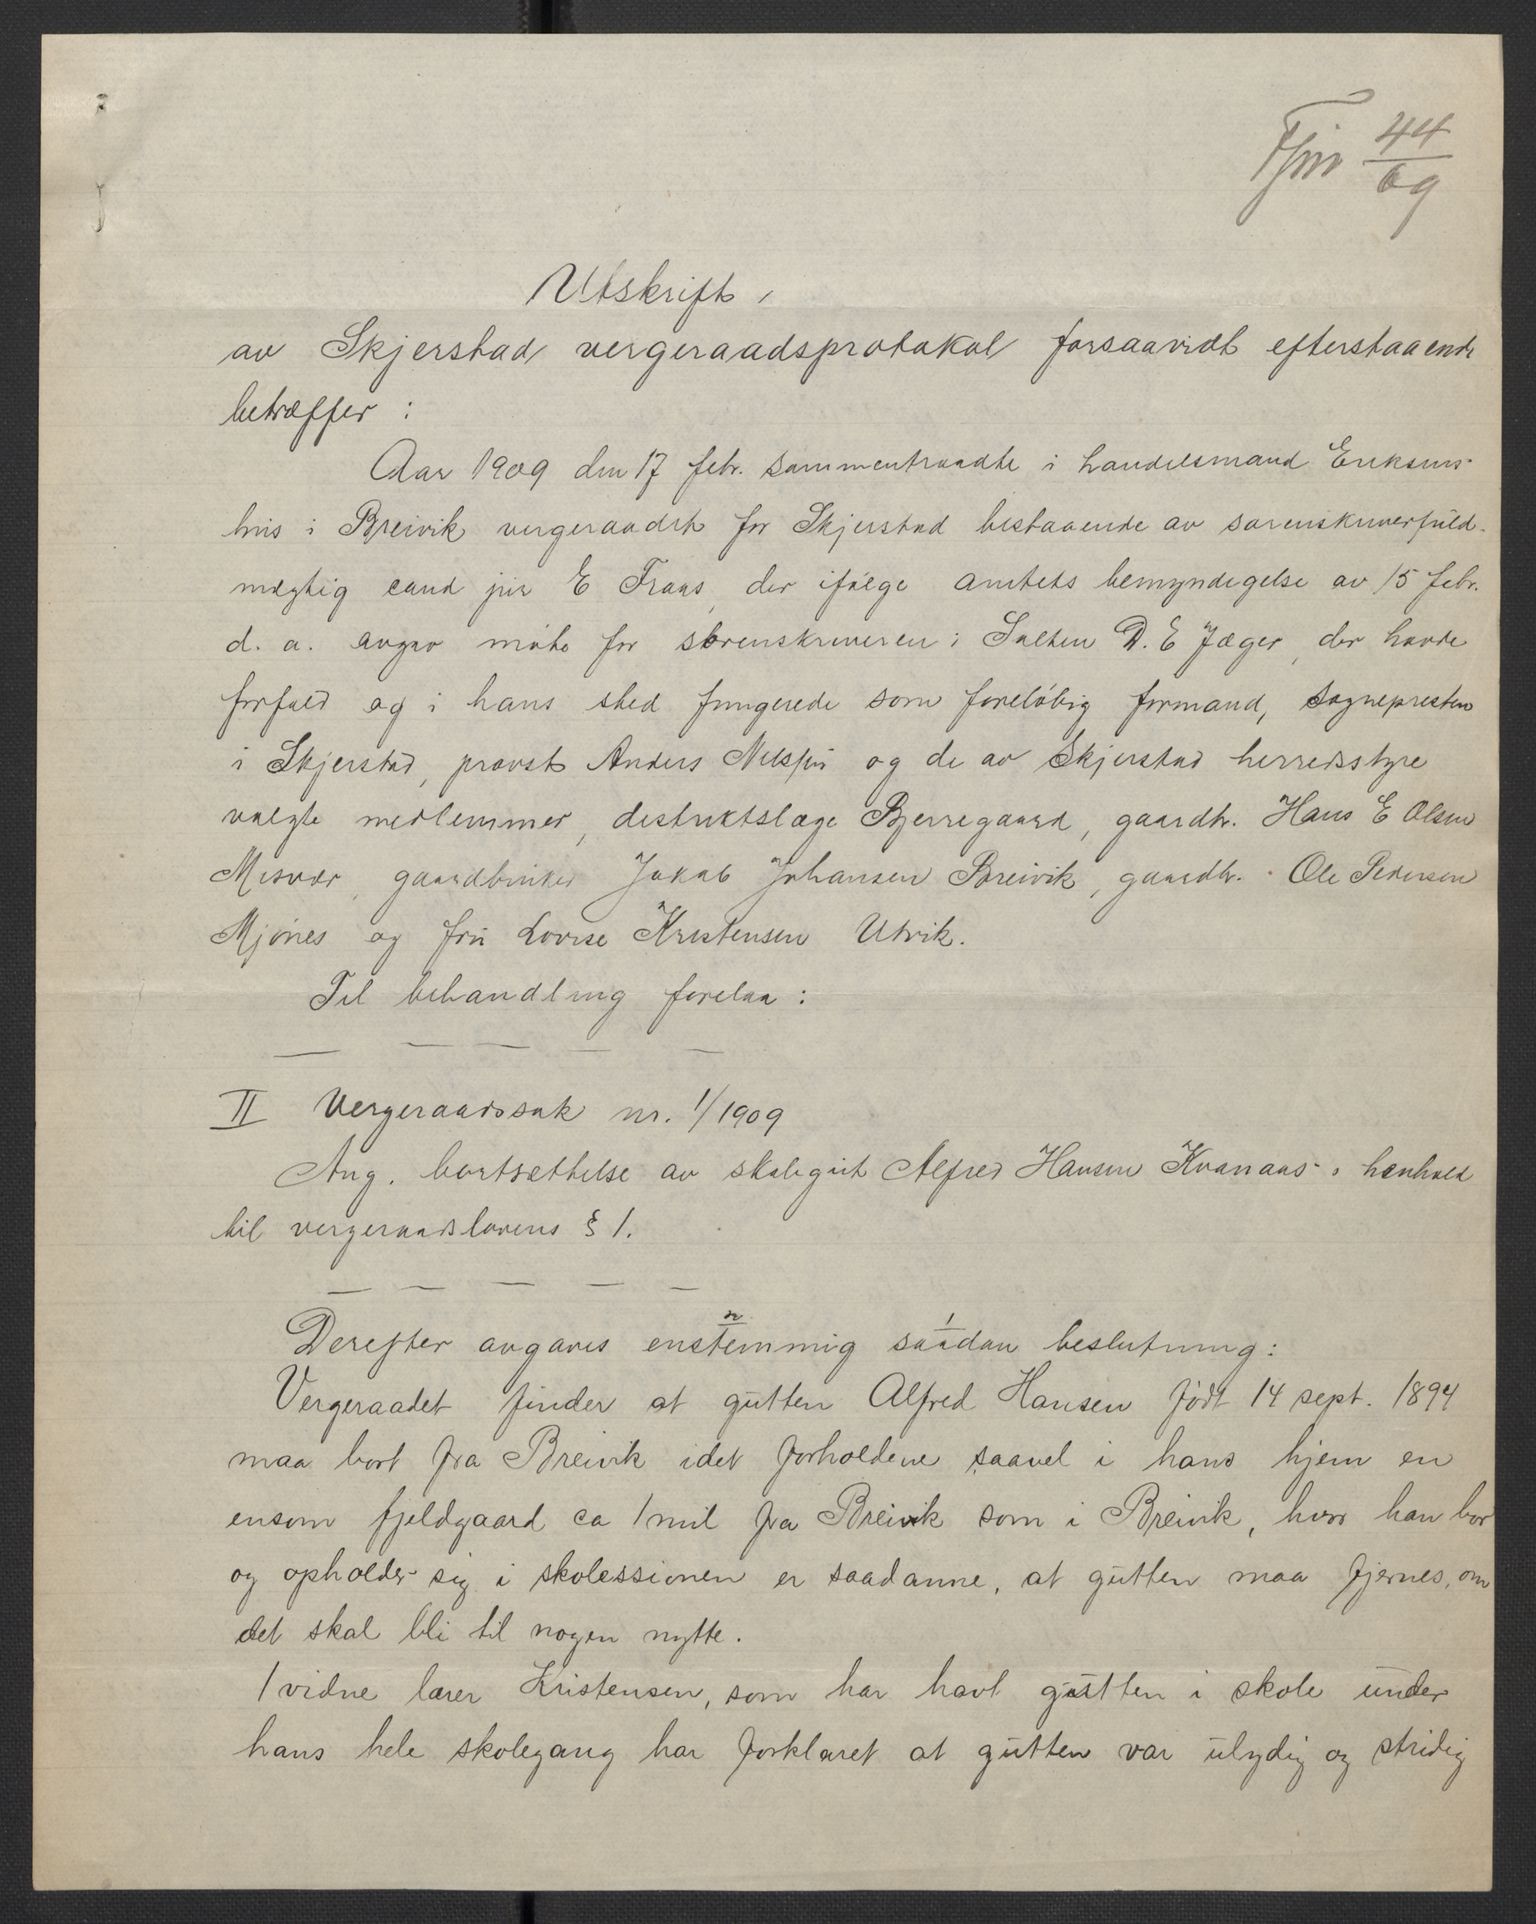 44
09
Utskrift,
av Skjerstad vergeraadsprotokol forsaavidt efterstaaende
betræffer :
Aar 1909 den 17 febr. sammentraadte i handelsmand Eriksens
hus i Breivik vergeraadet for Skjerstad bestaaende av sorenskriverfuld-
mægtig cand jur E Traas, der ifølge amtets bemyndigelse av 15 febr.
d. a. avgav møte for sorenskriveren i Salten D. E Jæger, der havde
forfald og i hans sted fungerede som foreløbig formand, sognepresten
i Skjerstad, provst Anders Nilssen og de av Skjerstad herredsstyre
valgte medlemmer, distriktslæge Bjerregaard, gaardbr. Hans E Olsen
Misvær, gaardbruker Jakob Johansen Breivik, gaardbr. Ole Pedersen
Mjønes og fru Lovise Kristensen Utvik.
Til behandling forelaa :
— — — — —
II Vergeraadssak nr. 1/1909
Ang. bortsættelse av skolegut Alfred Hansen Kvanaas i henhold
til vergeraadslovens § 1.
— — — — —
Derefter avgaves enstemmig saadan beslutning :
Vergeraadet finder at gutten Alfred Hansen født 14 sept. 1894
maa bort fra Breivik idet forholdene saavel i hans hjem en
ensom fjeldgaard ca 1 mil fra Breivik som i Breivik, hvor han bor
og opholder sig i skolessionen er saadanne, at gutten maa fjernes, om
det skal bli til nogen nytte.
1 vidne lærer Kristensen, som har havt gutten i skole under
hans hele skolegang har forklaret at gutten var ulydig og stridig